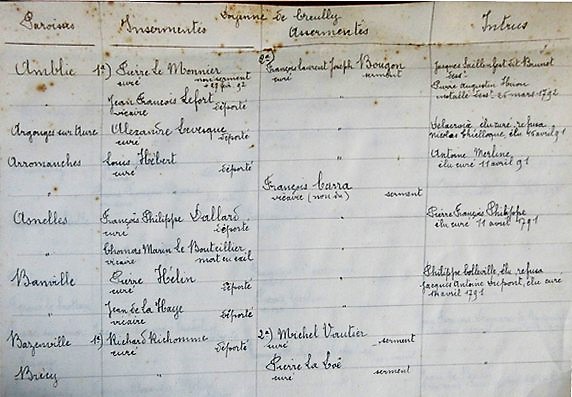 Doyenné de Creully
Paroisses Insermentés Assermentés Intrus
Amblie 1º) Pierre Le Monnier 2º) François Laurent Joseph Bougon Jacques
curé non serment curé serment
Pierre Augustin
installé 25 mars 1792
" Jean François Lefort "
vicaire déporté
Argouges sur Aure Alexandre Levesque " élu curé, refusa
curé déporté Nicolas élu 15 avril 91
Arromanches Louis Hébert " Antoine Merline
curé déporté élu curé 11 avril 91
" François Carra
vicaire (non du) serment
Asnelles François Philippe Dallard " Pierre François Philippe
curé déporté élu curé 11 avril 1791
" Thomas Marin Le Bouteillier
vicaire mort en exil "
Banville Pierre Hélin Philippe Colleville, élu, refusa
curé déporté " Jacques Antoine Dupont, élu curé
avril 1791
" Jean de la Haye
vicaire déporté "
Bazenville 1º) Richard Richomme 2º) Michel Vautier
curé déporté curé serment
Brécy " Pierre La Loë "
curé serment